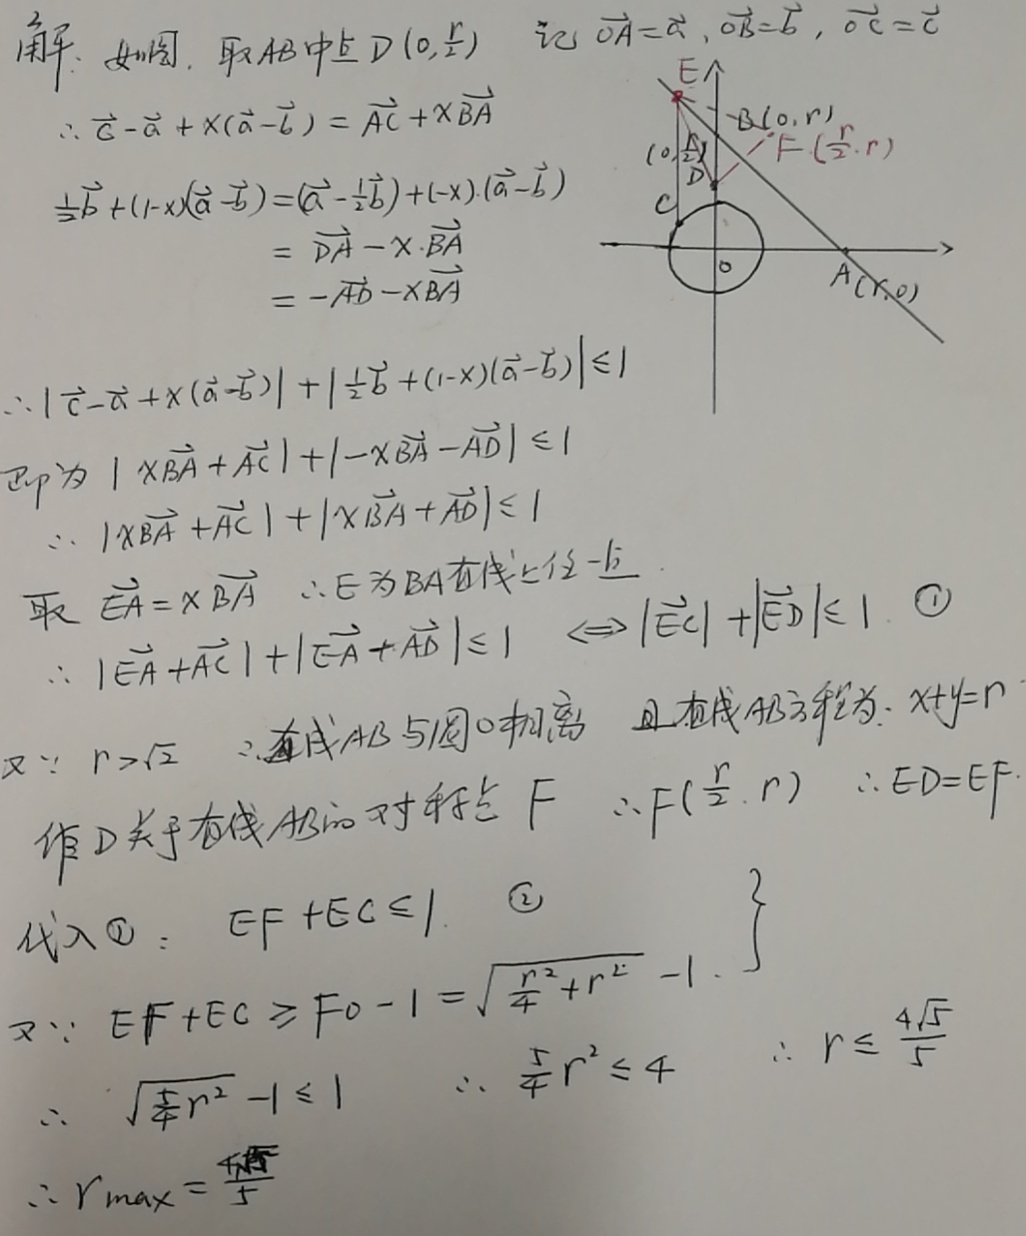 解: 如图, 取AB中点D(0,r/2) 记 →OA=→a, →OB=→b, →OC=→c
∴ →c-→a+x(→a-→b)=→AC+x→BA
1/2→b+(1-x)(→a-→b)=(→a-1/2→b)+(-x).(→a-→b)
=→DA-x·→BA
=-→AD-x→BA
E
B(0,r)
F(r/2.r)
(0,r/2)
D
C
O
A(r,0)
∴|→c-→a+x(→a-→b)|+|1/2→b+(1-x)(→a-→b)|≤1
即为 |x→BA+→AC|+|-x→BA-→AD|≤1
∴ |x→BA+→AC|+|x→BA+→AD|≤1
取 →EA=x→BA ∴E为BA直线上任一点
∴ |→EA+→AC|+|→EA+→AD|≤1 ⇔|→EC|+|→ED|≤1 ①
又∵ r>√2 ∴直线AB与圆O相离 且直线AB方程为: x+y=r
作D关于直线AB的对称点F ∴F(r/2.r) ∴ED=EF.
代入①: EF+EC≤1. ②
又∵ EF+EC≥FO-1=√(r²/4+r²)-1. }
∴ √(5/4r²)-1≤1 ∴ 5/4r²≤4 ∴ r≤4√5/5
∴rmax=4√5/5